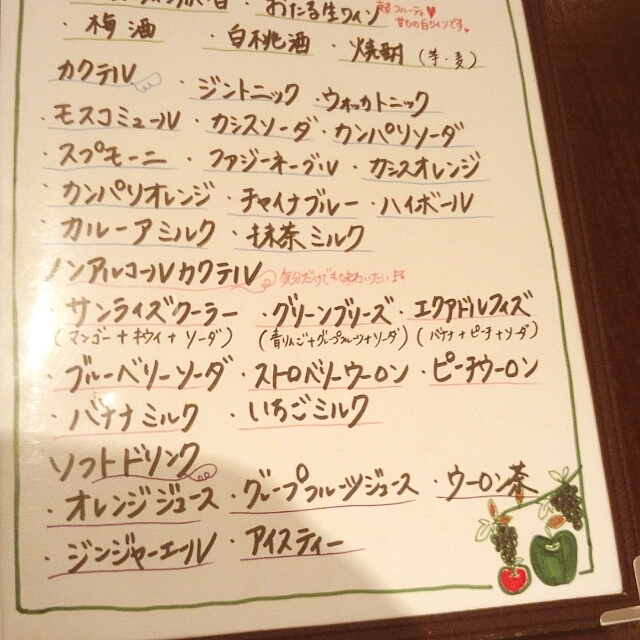 ・おたる生ワイン 超フルーティ♥
甘口の白ワインです。
・梅酒 ・白桃酒 ・焼酎(芋・麦)
カクテル ・ジントニック ・ウォッカトニック
・モスコミュール ・カシスソーダ ・カンパリソーダ
・スプモーニ ・ファジーネーブル ・カシスオレンジ
・カンパリオレンジ ・チャイナブルー ・ハイボール
・カルーアミルク ・抹茶ミルク
ノンアルコールカクテル 気分だけでも味わいたい
・サンライズクーラー ・グリーンブリーズ ・エクアドルフィズ
(マンゴー+キウイ+ソーダ) (青りんご+グレープフルーツ+ソーダ) (バナナ+ピーチ+ソーダ)
・ブルーベリーソーダ ・ストロベリーウーロン ・ピーチウーロン
・バナナミルク ・いちごミルク
ソフトドリンク
・オレンジジュース ・グレープフルーツジュース ・ウーロン茶
・ジンジャーエール ・アイスティー